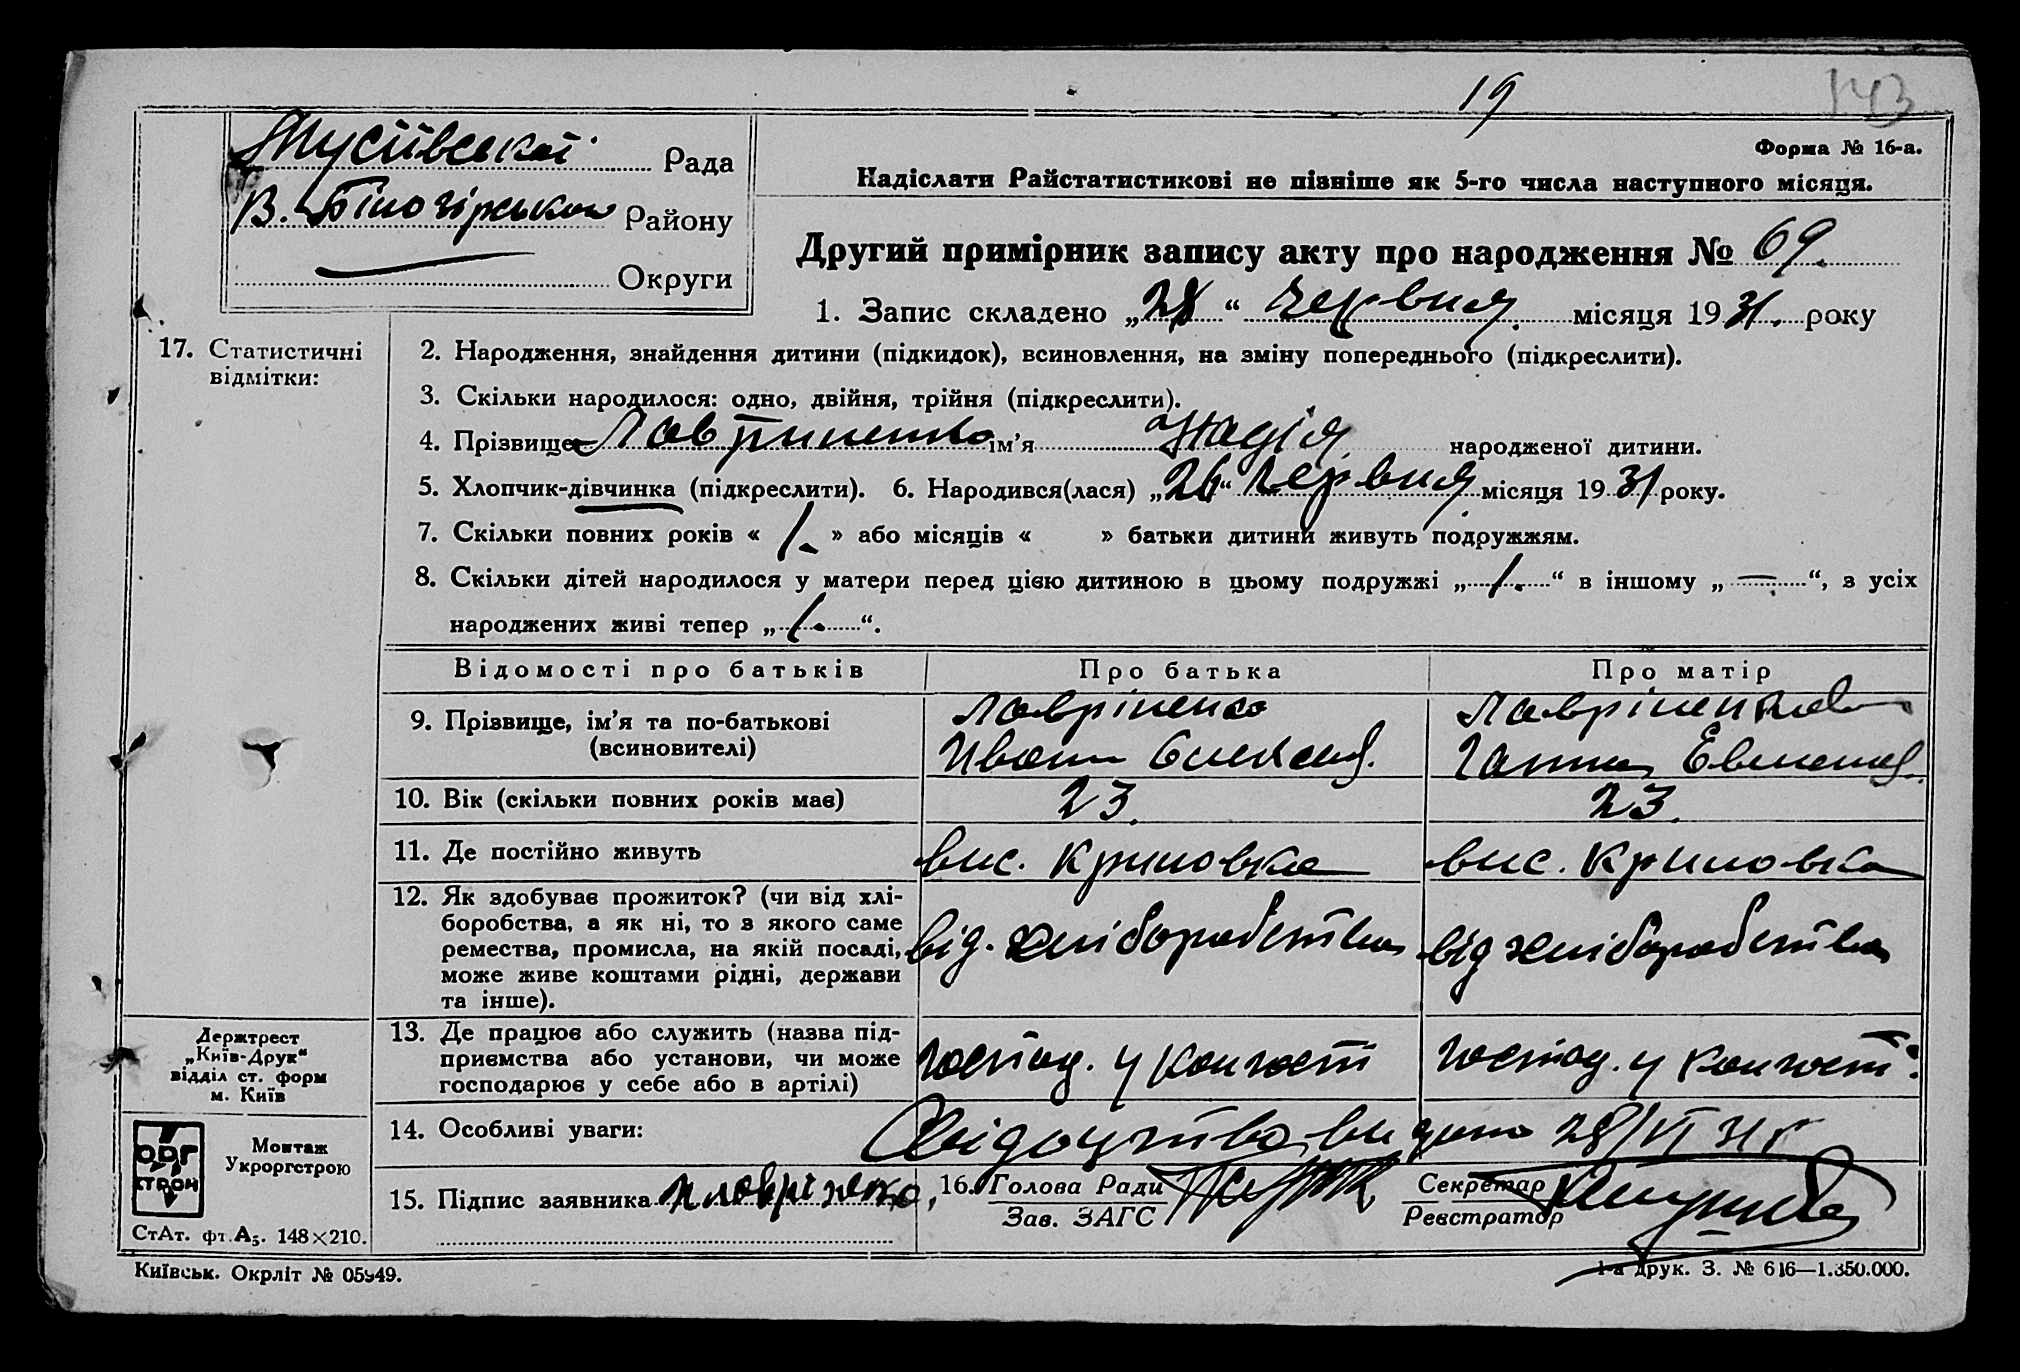 19
143
Мусіївської Рада
В. Білогірського Району
Округи
Форма № 16-а.
Надіслати Райстатистикові не пізніше як 5-го числа наступного місяця.
Другий примірник запису акту про народження № 69.
1. Запис складено „28“ червня місяця 1931. року
17. Статистичні
відмітки:
2. Народження, знайдення дитини (підкидок), всиновлення, на зміну попереднього (підкреслити).
3. Скільки народилося: одно, двійня, трійня (підкреслити).
4. Прізвище Лавріненко ім’я Надія народженої дитини.
5. Хлопчик-дівчинка (підкреслити). 6. Народився(лася) „26“ червня місяця 1931 року.
7. Скільки повних років « 1. » або місяців « » батьки дитини живуть подружжям.
8. Скільки дітей народилося у матери перед цією дитиною в цьому подружжі „1.“ в іншому „—“, з усіх
народжених живі тепер „1.“.
Відомості про батьків Про батька Про матір
9. Прізвище, ім’я та по-батькові
(всиновителі)
Лавріненко
Иван
Лавріненкова
Ганна
10. Вік (скільки повних років має) 23. 23.
11. Де постійно живуть вис. Криновка вис. Криновка
12. Як здобуває прожиток? (чи від хлі-
боробства, а як ні, то з якого саме
ремества, промисла, на якій посаді,
може живе коштами рідні, держави
та інше).
від. хліборобства від хліборобства
13. Де працює або служить (назва під-
приємства або установи, чи може
господарює у себе або в артілі)
господ. у колгосп господ. у колгосп.
14. Особливі уваги: Свідоцтво видано 28/VI 31 г
15. Підпис заявника Лавріненко,
16. Голова Ради
Зав. ЗАГС
Секретар
Реєстратор
Держтрест
„Київ-Друк“
відділ ст. форм
м. Київ
ОРГ
СТРОЙ
Монтаж
Укроргстрою
СтАт. фт. А₅. 148×210.
Київськ. Окрліт № 05949.
1-а друк. З. № 616—1.350.000.